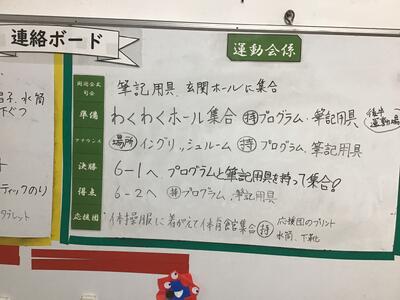 連絡ボード
運動会係
開閉会式
司会
筆記用具、玄関ホールに集合
準備
わくわくホール集合 持 プログラム・筆記用具
後半
運動場
アナウンス
場所 イングリッシュルーム 持 プログラム、筆記用具
決勝
6-1へ、プログラムと筆記用具を持って集合!
得点
6-2へ 持 プログラム、筆記用具
応援団
体操服に着がえて体育館集合 持
応援団のプリント
水筒、下靴
子、水筒
下ぐつ
ティックのり
タブレット